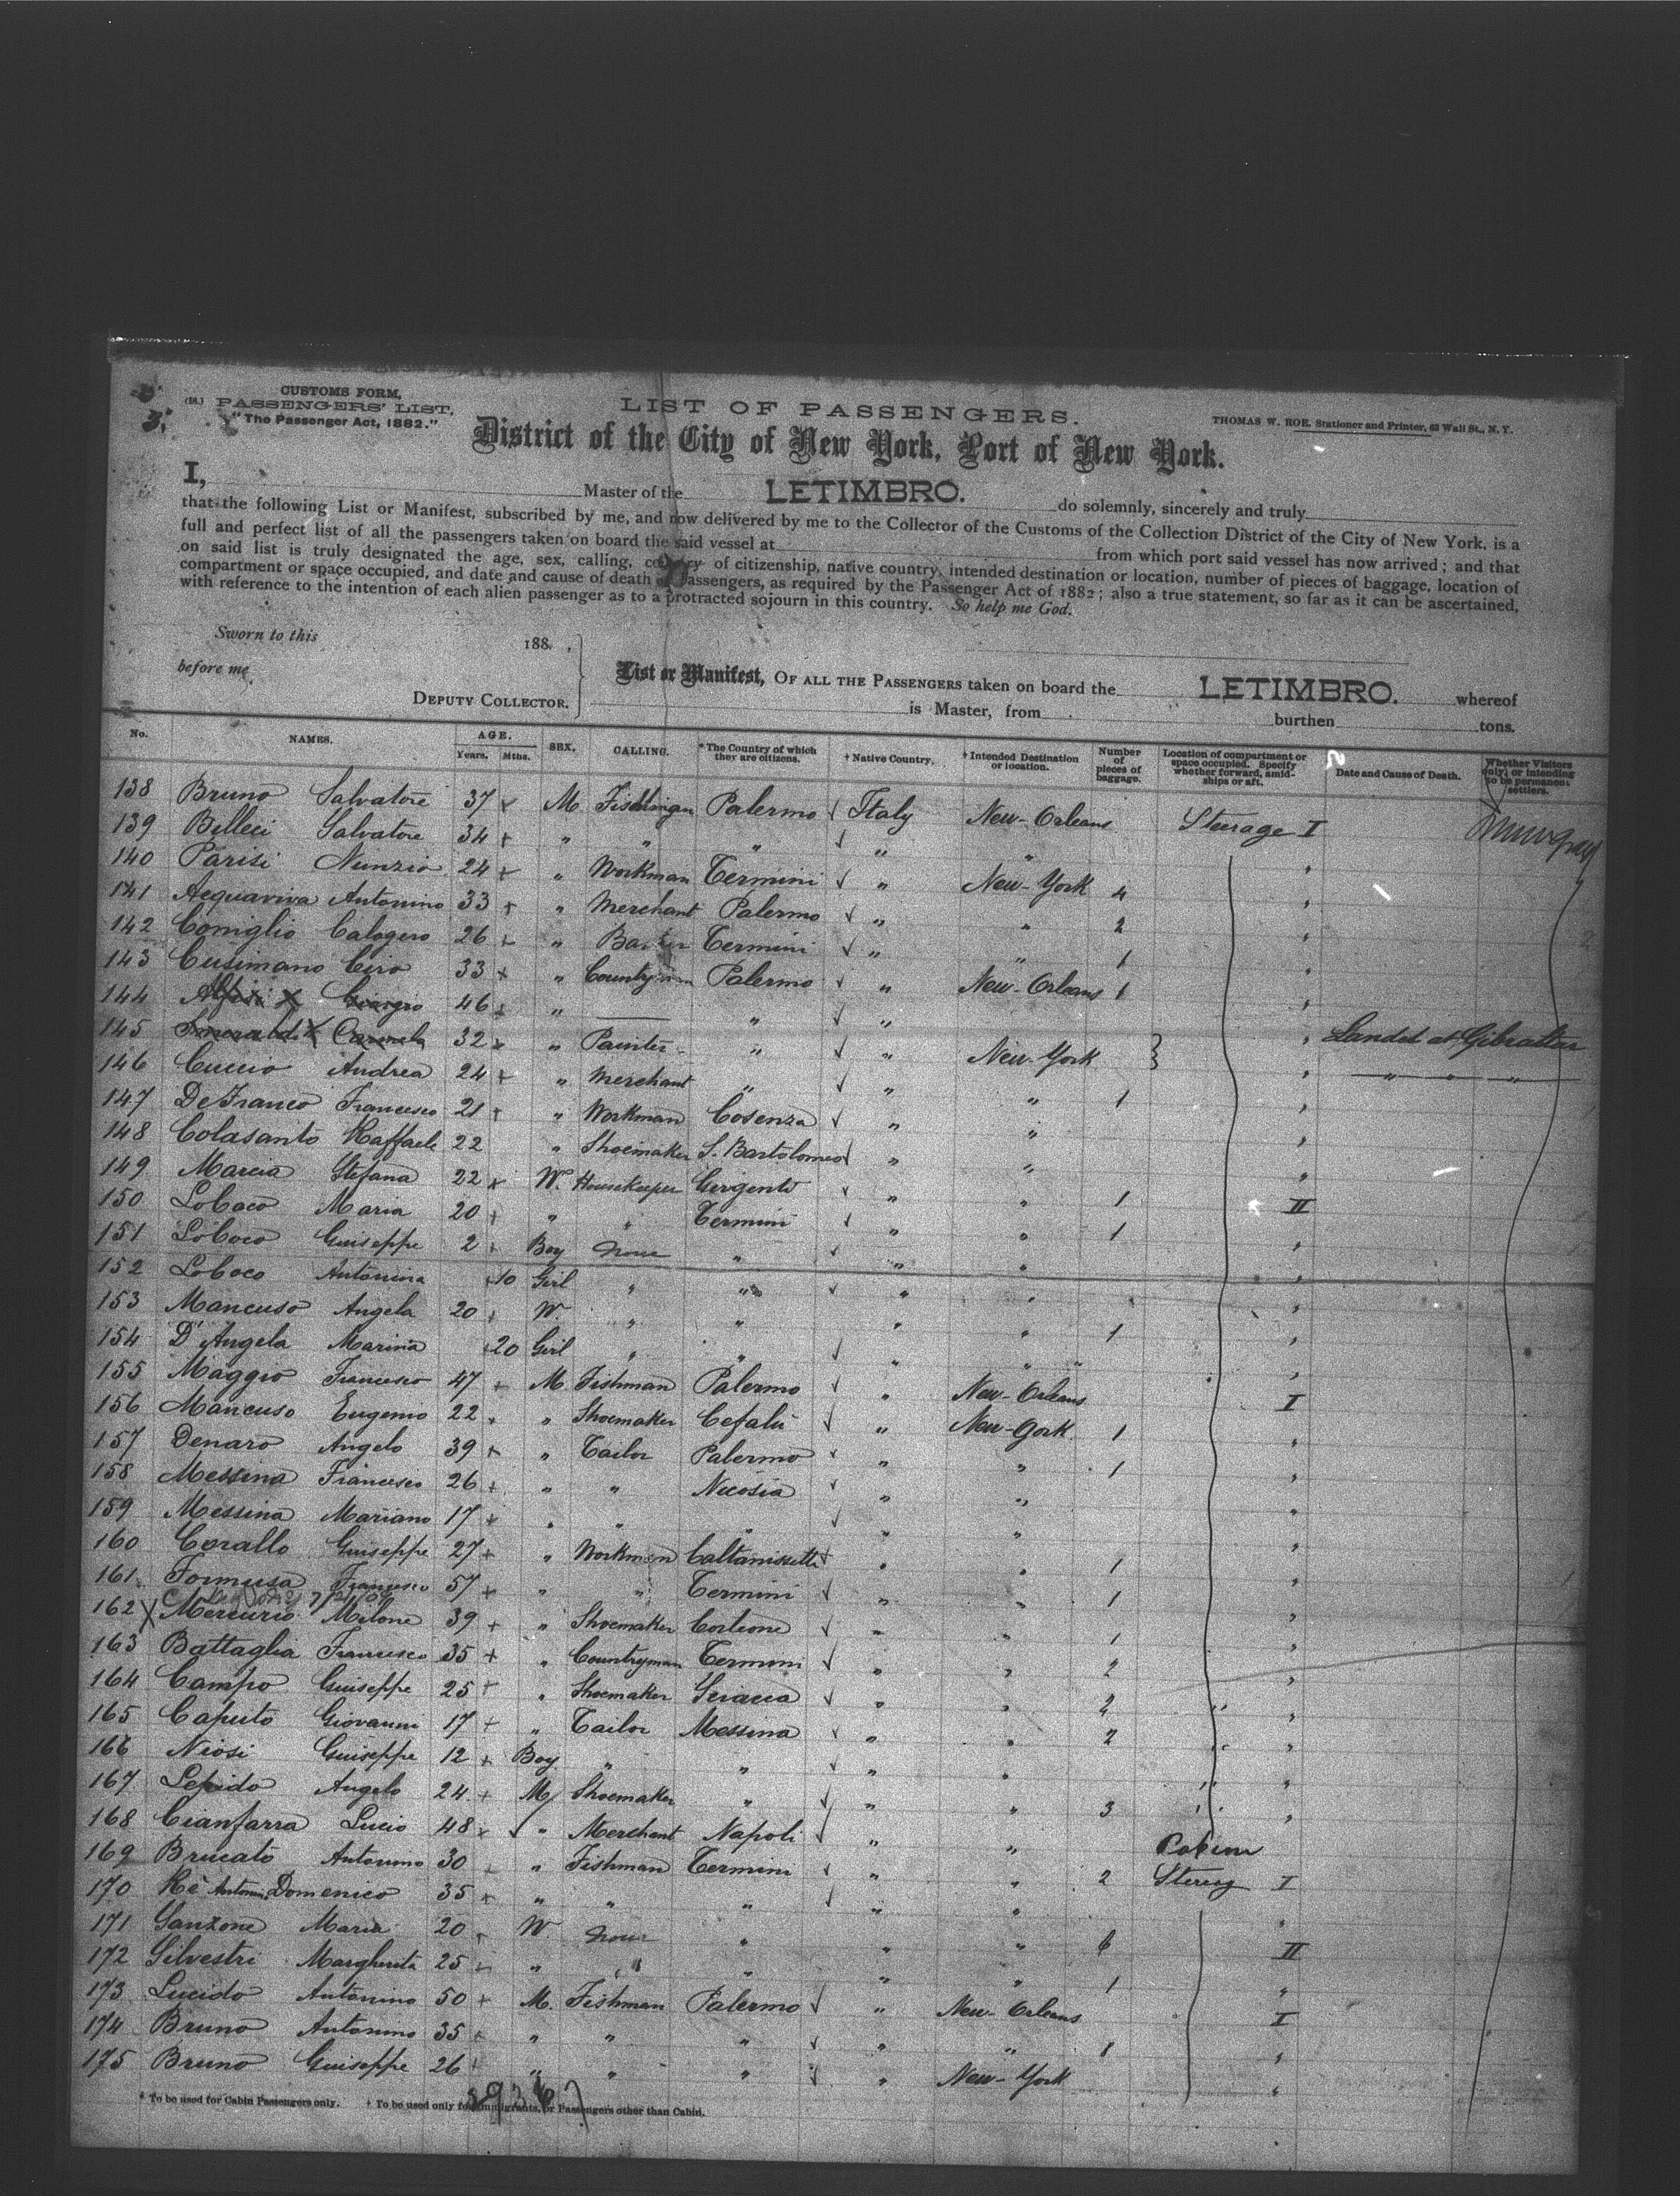 3.
CUSTOMS FORM,
PASSENGERS' LIST,
"The Passenger Act, 1882."
LIST OF PASSENGERS.
THOMAS W. ROE, Stationer and Printer, 63 Wall St., N.Y.
District of the City of New York, Port of New York.
I, Master of the LETIMBRO. do solemnly, sincerely and truly
that the following List or Manifest, subscribed by me, and now delivered by me to the Collector of the Customs of the Collection District of the City of New York, is a
full and perfect list of all the passengers taken on board the said vessel at from which port said vessel has now arrived; and that
on said list is truly designated the age, sex, calling, country of citizenship, native country, intended destination or location, number of pieces of baggage, location of
compartment or space occupied, and date and cause of death of passengers, as required by the Passenger Act of 1882; also a true statement, so far as it can be ascertained,
with reference to the intention of each alien passenger as to a protracted sojourn in this country. So help me God.
Sworn to this 188 ,
before me,
DEPUTY COLLECTOR.
List or Manifest, OF ALL THE PASSENGERS taken on board the LETIMBRO. whereof
is Master, from burthen tons.
No. NAMES. AGE. Years. Mths. SEX. CALLING. *The Country of which they are citizens. †Native Country. †Intended Destination or location. Number of pieces of baggage. Location of compartment or space occupied. Specify whether forward, amidships or aft. Date and Cause of Death. Whether Visitors only, or intending to be permanent settlers.
138 Bruno Salvatore 37 M. Palermo Italy New-Orleans Steerage I
139 Billeci Salvatore 34 " " " " "
140 Parisi Nunzio 24 " Workman Termini " New-York 4 "
141 Acquaviva Antonino 33 " Merchant Palermo " " 2 "
142 Coniglio Calogero 26 " Termini " " 1 "
143 Cusimano Ciro 33 " Countryman Palermo " New-Orleans 1 "
144 46 " — " " "
145 Carmela 32 " Painter " " New-York " Landed at Gibraltar
146 Cuccio Andrea 24 " Merchant " " " 1 " " " "
147 DeFranco Francesco 21 " Workman Cosenza " " "
148 Colasanto Raffaele 22 " Shoemaker S. Bartolomeo " " "
149 Marcia Stefana 22 W. Housekeeper Girgenti " " 1 II
150 LoCoco Maria 20 " " Termini " " 1 "
151 LoCoco Guiseppe 2 Boy None " " " "
152 LoCoco Antonina 10 Girl " " " " "
153 Mancuso Angela 20 W. " " " " 1 "
154 D'Angela Marina 20 Girl " " " " "
155 Maggio Francesco 47 M. Fishman Palermo " New-Orleans I
156 Mancuso Eugenio 22 " Shoemaker Cefalù " New-York 1 "
157 Denaro Angelo 39 " Tailor Palermo " " 1 "
158 Messina Francesco 26 " " Nicosia " " "
159 Messina Mariano 17 " " " " " "
160 Corallo Guiseppe 27 " Workman Caltanissetta " " 1 "
161 Formusa Francesco 57 " " Termini " " 1 "
162 X Mercurio Milone 39 " Shoemaker Corleone " " 1 "
163 Battaglia Francesco 35 " Countryman Termini " " 2 "
164 Campo Guiseppe 25 " Shoemaker Sciacca " " 2 " "
165 Caputo Giovanni 17 " Tailor Messina " " 2 " "
166 Niosi Guiseppe 12 Boy " " " " " "
167 Lepido Angelo 24 M Shoemaker " " " 3 " "
168 Cianfarra Lucio 48 " Merchant Napoli " " Cabin
169 Brucato Antonino 30 " Fishman Termini " " 2 Steerag I
170 Rè Antonin Domenico 35 " " " " " "
171 Sanzone Maria 20 W. None " " " 6 II
172 Silvestri Margherita 25 " " " " " 1 "
173 Lucido Antonino 50 M. Fishman Palermo " New-Orleans I
174 Bruno Antonino 35 " " " " " 1 "
175 Bruno Guiseppe 26 " " " " New-York "
* To be used for Cabin Passengers only. † To be used only for Immigrants, or Passengers other than Cabin.